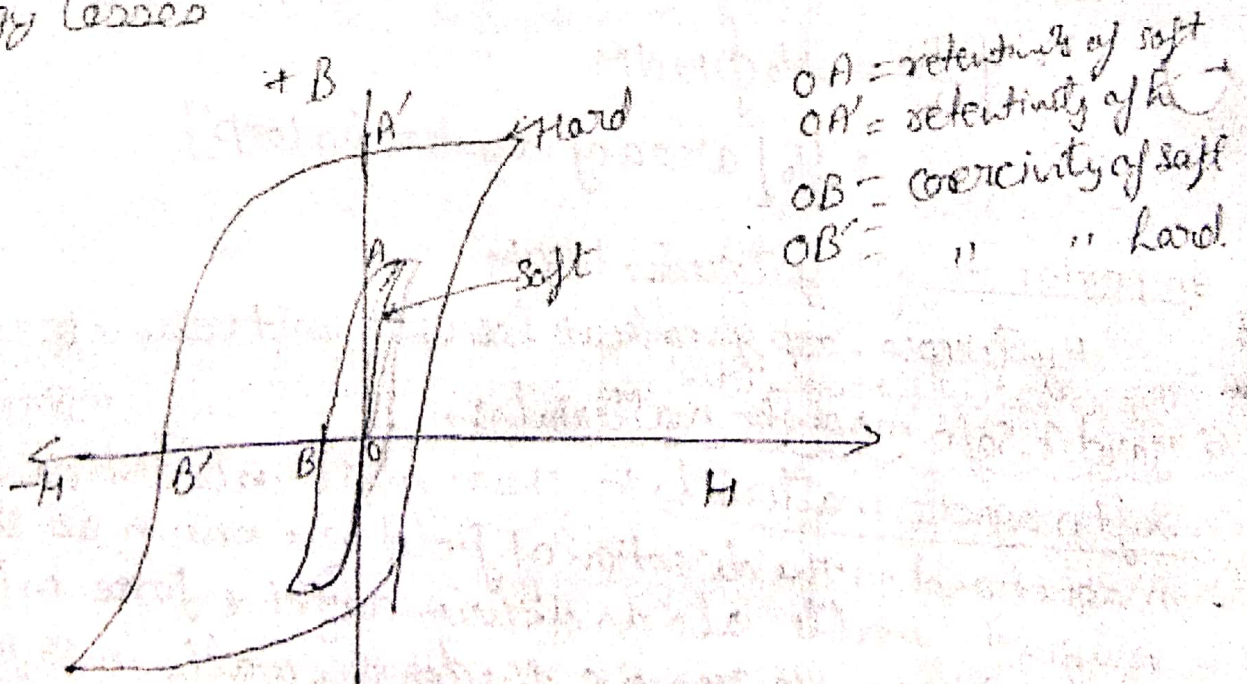 Losses
+B
A'
Hard
A
Soft
-H
B'
B
O
H
OA = retentivity of soft
OA' = retentivity of
OB = coercivity of soft
OB' = " " hard.